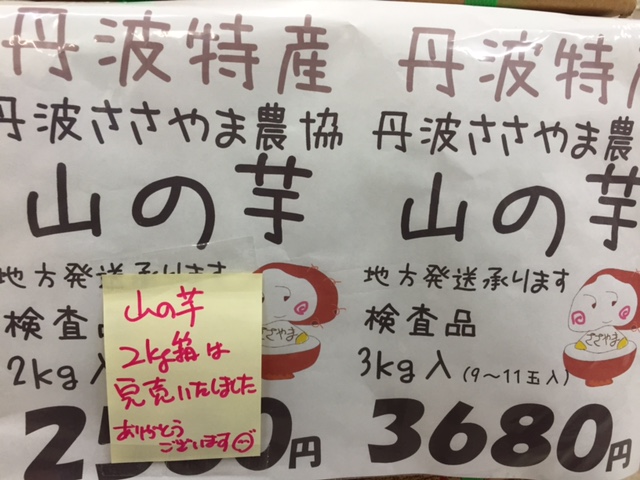 丹波特産
丹波ささやま農協
山の芋
地方発送承ります
検査品
2kg入
山の芋
2kg箱は
完売いたしました
ありがとう
ございます
円
ささやま
丹波特産
丹波ささやま農
山の芋
地方発送承ります
検査品
3kg入(9~11玉入)
3680円
ささやま